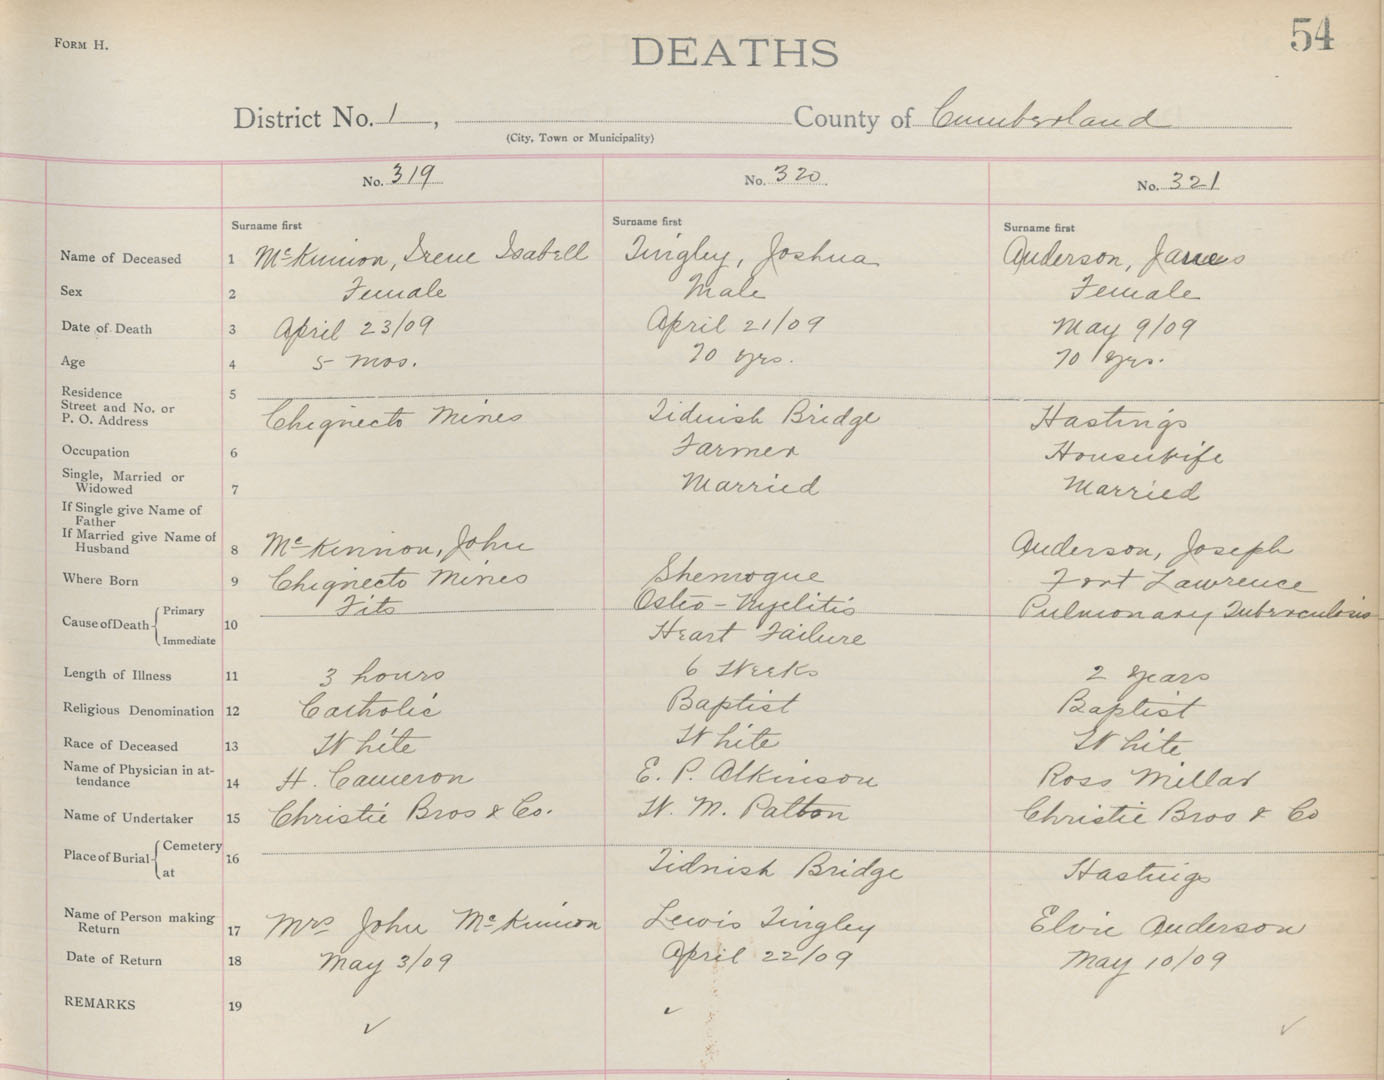 FORM H.
DEATHS
54
District No. 1, County of Cumberland
(City, Town or Municipality)
No. 319 No. 320 No. 321
Surname first Surname first Surname first
Name of Deceased 1 McKinnon, Irene Isabell Tingley, Joshua Anderson,
Sex 2 Female Male Female
Date of Death 3 April 23/09 April 21/09 May 9/09
Age 4 5 mos. 70 yrs. 70 yrs.
Residence 5
Street and No. or
P. O. Address Chignecto Mines Tidnish Bridge Hastings
Occupation 6 Farmer Housewife
Single, Married or
Widowed 7 Married Married
If Single give Name of
Father
If Married give Name of
Husband 8 McKinnon, John Anderson, Joseph
Where Born 9 Chignecto Mines Shemogue Fort Lawrence
Cause of Death { Primary Fits Osteo-Myelitis Pulmonary Tuberculosis
10
Immediate Heart Failure
Length of Illness 11 3 hours 6 Weeks 2 years
Religious Denomination 12 Catholic Baptist Baptist
Race of Deceased 13 White White White
Name of Physician in at-
tendance 14 H. Cameron E. P. Atkinson Ross Millar
Name of Undertaker 15 Christie Bros & Co. W. M. Patton Christie Bros & Co
Place of Burial { Cemetery 16
at Tidnish Bridge Hastings
Name of Person making
Return 17 Mrs John McKinnon Lewis Tingley Elvie Anderson
Date of Return 18 May 3/09 April 22/09 May 10/09
REMARKS 19